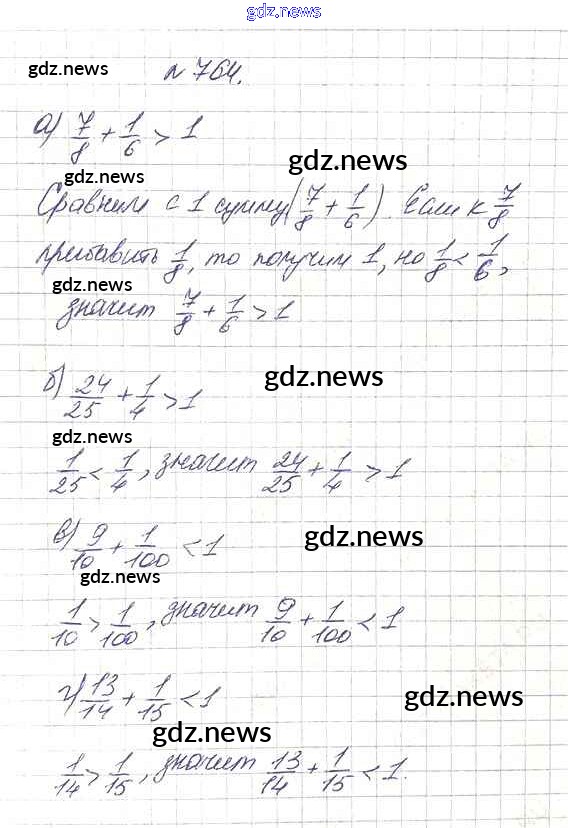 gdz.news
gdz.news
№ 764.
а) 7/8 + 1/6 > 1
gdz.news
gdz.news
Сравним с 1 сумму (7/8 + 1/6). Если к 7/8
прибавить 1/8, то получим 1, но 1/8 < 1/6,
gdz.news
значит 7/8 + 1/6 > 1
б) 24/25 + 1/4 > 1
gdz.news
gdz.news
1/25 < 1/4, значит 24/25 + 1/4 > 1
в) 9/10 + 1/100 < 1
gdz.news
gdz.news
1/10 > 1/100, значит 9/10 + 1/100 < 1
г) 13/14 + 1/15 < 1
gdz.news
gdz.news
1/14 > 1/15, значит 13/14 + 1/15 < 1.